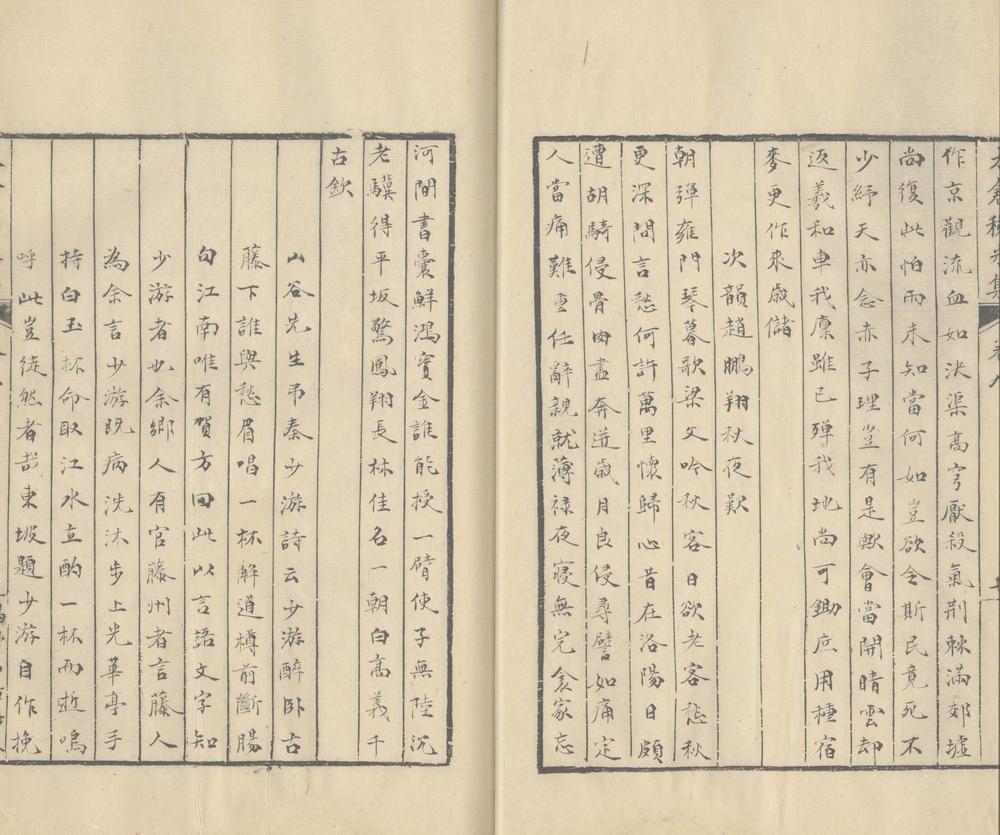 作京觀流血如決渠高穹厭殺氣荆棘滿郊墟
尚復此怕雨未知當何如豈欲令斯民竟死不
少紓天亦念赤子理豈有是歟會當開晴雲却
返羲和車我廩雖已殫我地尚可鋤庶用種宿
麥更作來歲儲
次韻趙鵬翔秋夜歎
朝彈雍門琴暮歌梁父吟秋客日欲老客愁秋
更深問言愁何許萬里懷歸心昔在洛陽日頗
遭胡騎侵骨肉盡奔迸歲月良侵尋譬如痛定
人當痛難重任辭親就薄禄夜寢無完衾家忘
河間書囊鮮鴻寳金誰能授一臂使子無陸沉
老驥得平坂驚鳳翔長林佳名一朝白高義千
古欽
山谷先生弔秦少游詩云少游醉卧古
藤下誰與愁眉唱一杯解道樽前斷腸
句江南唯有賀方回此以言語文字知
少游者也余鄉人有官藤州者言藤人
為余言少游既病洗沐步上光華亭手
持白玉杯命取江水立酌一杯而逝嗚
呼此豈徒然者哉東坡題少游自作挽